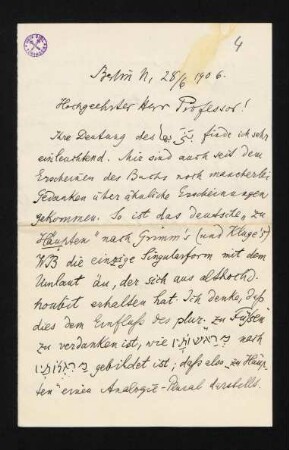 4
Berlin N, 28/6 1906.
Hochgeehrter Herr Professor!
Ihre Deutung des finde ich sehr
einleuchtend. Mir sind auch seit dem
Erscheinen des Buchs noch mancherlei
Gedanken über ähnliche Erscheinungen
gekommen. So ist das deutsche „zu
Häupten" nach Grimm's (und Kluge's)
WB die einzige Singularform mit dem
Umlaut äu, der sich aus altkochd.
houbit erhalten hat. Ich denke, daß
dies dem Einfluß des plur. „zu Füßen"
zu verdanken ist, wie מראשותיו nach
מרגלותיו gebildet ist; daß also „zu Häup-
ten" einen Analogie-Plural darstellt.